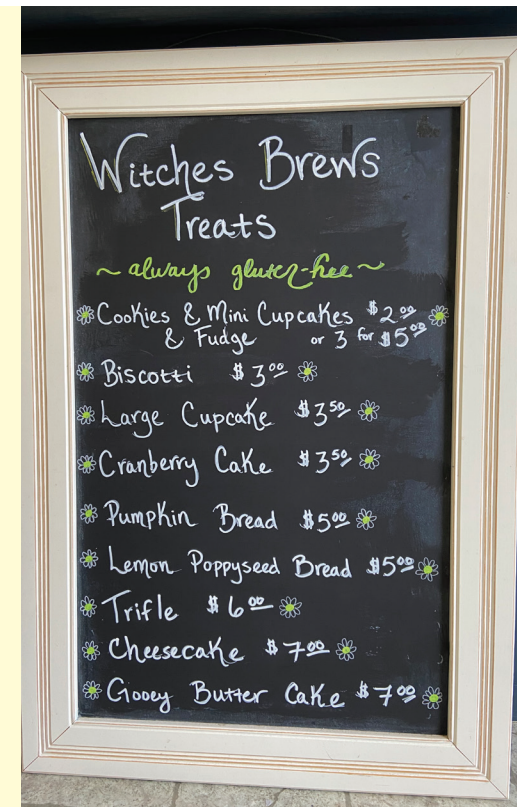 Witches Brews
Treats
~ always gluten-free ~
Cookies & Mini Cupcakes $2.00
& Fudge or 3 for $5.00
Biscotti $3.00
Large Cupcake $3.50
Cranberry Cake $3.50
Pumpkin Bread $5.00
Lemon Poppyseed Bread $5.00
Trifle $6.00
Cheesecake $7.00
Gooey Butter Cake $7.00